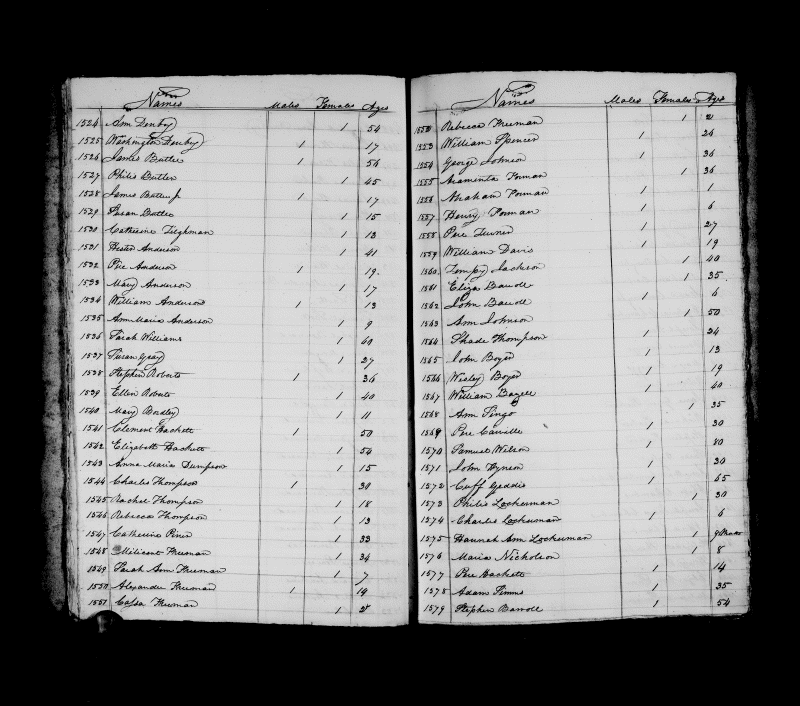 Names Males Females Ages
1524 Ann Denby 1 54
1525 Washington Denby 1 17
1526 James Butler 1 56
1527 Philis Butler 1 45
1528 James Butler Jr 1 17
1529 Susan Butler 1 15
1530 Catherine Tilghman 1 13
1531 Hester Anderson 1 41
1532 Pere Anderson 1 19
1533 Mary Anderson 1 17
1534 William Anderson 1 13
1535 Ann Maria Anderson 1 9
1536 Sarah Williams 1 60
1537 Susan Gray 1 27
1538 Stephen Roberts 1 36
1539 Ellen Roberts 1 40
1540 Mary Bordley 1 11
1541 Clement Hackett 1 50
1542 Elizabeth Hackett 1 54
1543 Anna Maria Dumpson 1 15
1544 Charles Thompson 1 30
1545 Rachel Thompson 1 18
1546 Rebecca Thompson 1 13
1547 Catherine Piner 1 33
1548 Milicent Freeman 1 34
1549 Sarah Ann Freeman 1 7
1550 Alexander Freeman 1 14
1551 Freeman 1 2
Names Males Females Ages
1552 Rebecca Freeman 1 2
1553 William Spencer 1 26
1554 George Johnson 1 36
1555 Araminta Forman 1 36
1556 Abraham Forman 1 1
1557 Henry Forman 1 6
1558 Pere Turner 1 27
1559 William Davis 1 19
1560 Jackson 1 40
1561 Eliza Barroll 1 35
1562 John Barroll 1 6
1563 Ann Johnson 1 50
1564 Shade Thompson 1 24
1565 John Boyer 1 13
1566 Wesley Boyer 1 19
1567 William 1 40
1568 Ann Singo 1 35
1569 Pere Carville 1 30
1570 Samuel Wilson 1 40
1571 John Hynson 1 30
1572 Cuff Geddis 1 65
1573 Philis Lockerman 1 30
1574 Charles Lockerman 1 6
1575 Hannah Ann Lockerman 1 9 Months
1576 Maria Nicholson 1 8
1577 Pere Hackett 1 14
1578 Adam Simms 1 35
1579 Stephen Barroll 1 54